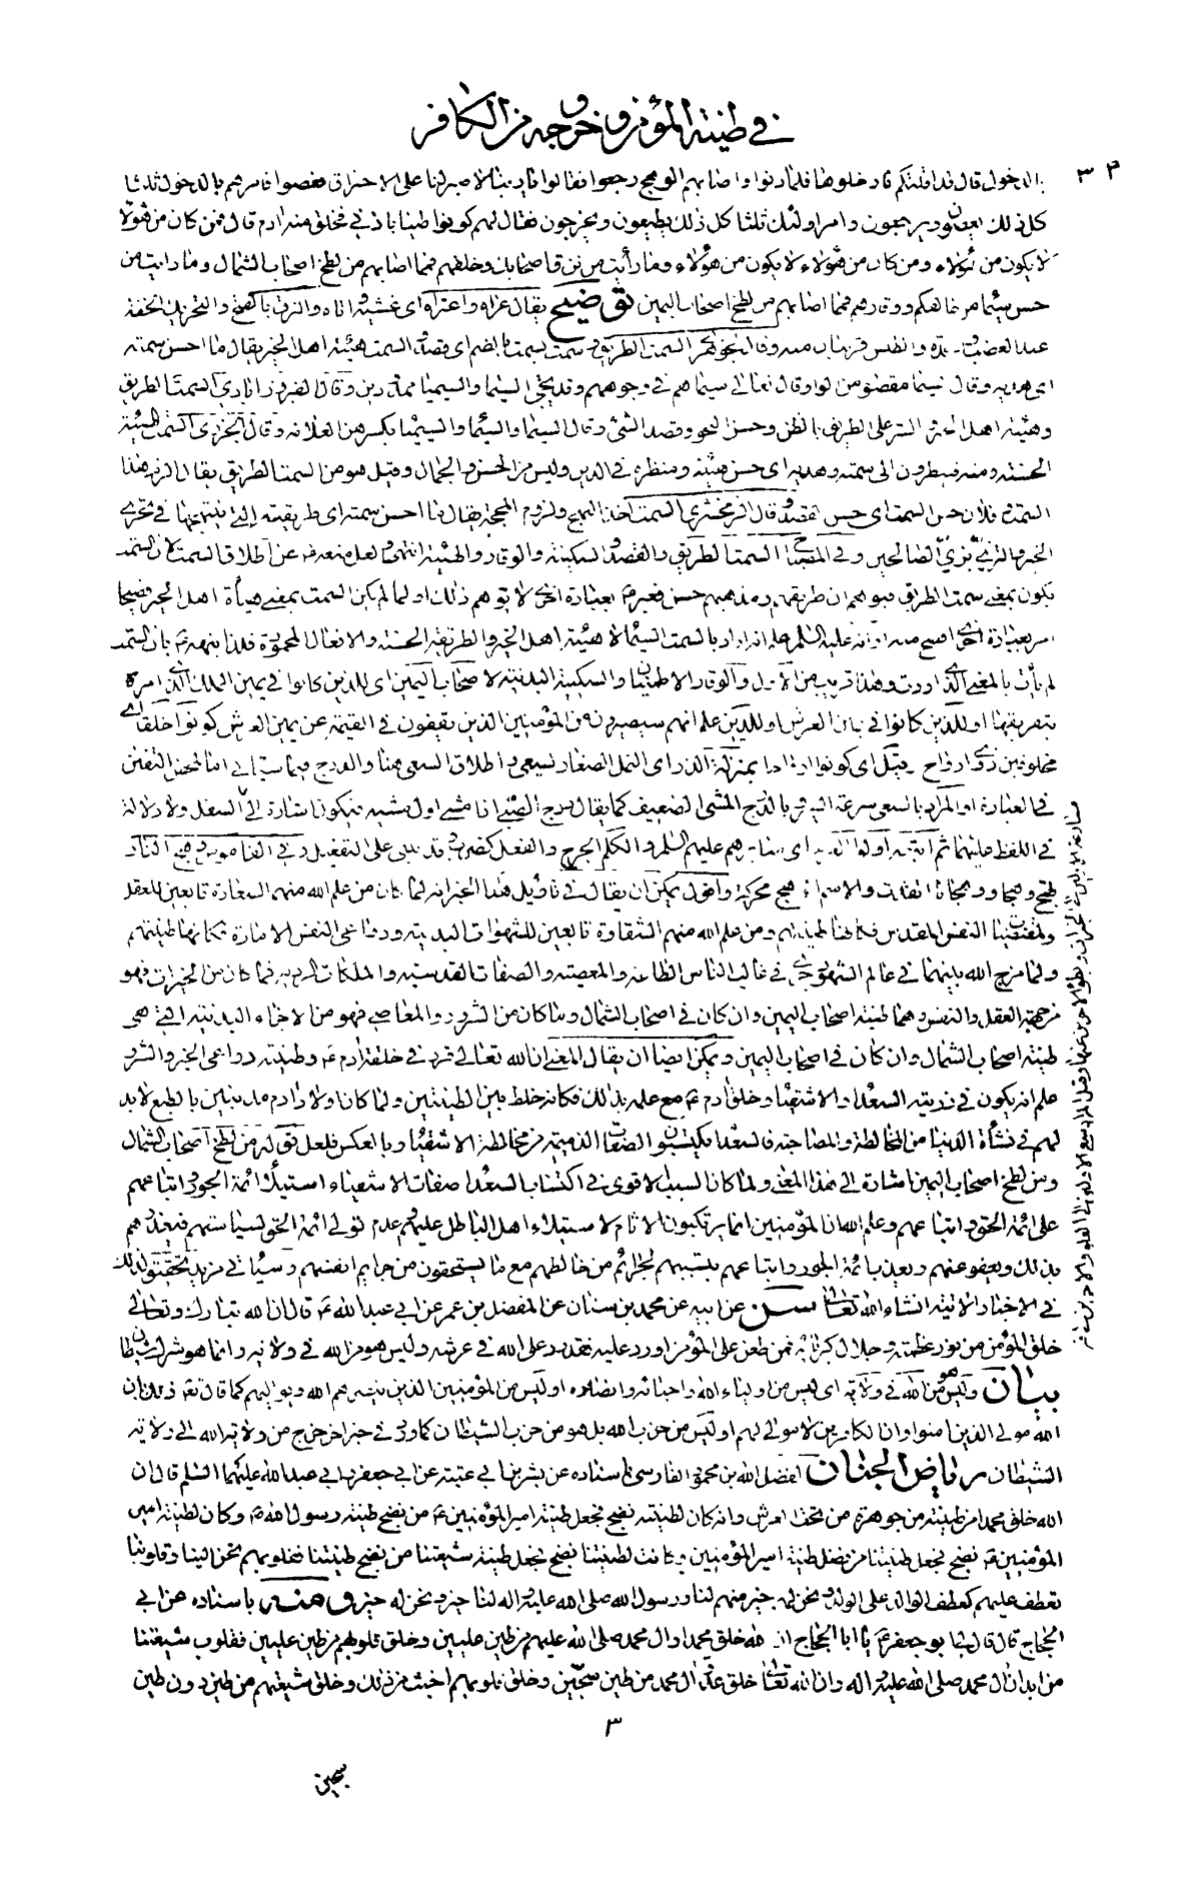 في طينة المؤمن و خروجه من الكافر
٣٣
بالدخول قال قد اقلتكم فادخلوها فلما دنوا واصابهم الوهج رجعوا فقالوا يا ربنا لا صبر لنا على الاحتراق فعصوا فامرهم بالدخول ثلاثا
كل ذلك يعصون ويرجعون وامر اولئك ثلثا كل ذلك يطيعون ويخرجون فقال لهم كونوا طينا باذني فخلق منه ادم قال فمن كان من هؤلاء
لا يكون من هؤلاء ومن كان من هؤلاء لا يكون من هؤلاء وما رأيت من نزق اصحابك وخلقهم فمما اصابهم من لطخ اصحاب الشمال وما رايت من
حسن سيما من خالفكم ووقارهم فمما اصابهم من لطخ اصحاب اليمين توضيح يقال عراه واعتراه اي غشيه واتاه والنزق بالفتح والتحريك الخفة
عند الغضب والطيش قريبان منه وقال الجوهري السمت الطريق وسمت يسمت بالضم اي قصد والسمت هيئة اهل الخير يقال ما احسن سمته
اي هديه وقال السيما مقصور من الواو قال تعالى سيماهم في وجوههم وقد يجئ السيما والسيميا ممدودين وقال الفيروزابادي السمت الطريق
وهيئة اهل الخير والسير على الطريق بالظن وحسن النحو وقصد الشئ وقال السيما والسيماء والسيمياء بكسرهن العلامة وقال الجزري السمت الهيئة
الحسنة ومنه فينظرون الى سمته وهديه اي حسن هيئته ومنظره في الدين وليس من الحسن والجمال وقيل هو من السمت الطريق يقال الزم هذا
السمت وفلان حسن السمت اي حسن القصد وقال الزمخشري السمت اخذ النهج ولزوم المحجة يقال ما احسن سمته اي طريقته التي ينتهجها في تحري
الخير والتزيي بزي الصالحين وفي المصباح السمت الطريق والقصد والسكينة والوقار والهيئة انتهى ولعل منعه ع عن اطلاق السمت لان السمت
يكون بمعنى سمت الطريق فيوهم ان طريقهم ومذهبهم حسن فعبر ع بعبارة اخرى لا يوهم ذلك او لما لم يكن السمت بمعنى هيأة اهل الخير فصيحا
امر بعبارة اخرى افصح منه او انه عليه السلم علم انه اراد بالسمت السيما لا هيئة اهل الخير والطريقة الحسنة والافعال المحمودة فلذا نبهه ع بان السمت
لم يأت بالمعنى الذي اردت وهذا قريب من الاول والوقار الاطمينان والسكينة البدنية لاصحاب اليمين اي للذين كانوا في يمين الملك الذي امره
بتفريقها او للذين كانوا في يمين العرش او للذين علم انهم سيصيرون من المؤمنين الذين يقفون في القيمة عن يمين العرش كونوا خلقا اي
مخلوقين ذوي ارواح وقيل اي كونوا ارواحا بمنزلة الذر اي النمل الصغار تسعى واطلاق السعي هنا والدرج فيما سيأتي اما لمحض التفنن
في العبارة او المراد بالسعي سرعة السير وبالدرج المشي الضعيف كما يقال درج الصبي اذا مشى اول مشيه فيكون اشارة الى السفل ولا دلالة
في اللفظ عليهما ثم اتبعه اولو العزم اي سارهم عليهم السلم والكلم الجرح والفعل كضرب وقد يبنى على التفعيل وفي القاموس وهج النار
يهج وهجا ووهجانا اتقدت والاسم الوهج محركة واقول يمكن ان يقال في تأويل هذا الخبر انه لما كان من علم الله منهم السعادة تابعين للعقل
ولمقتضيات النفس المقدس فكانها طينتهم ومن علم الله منهم الشقاوة تابعين للشهوات البدنية ودواعي النفس الامارة فكانها طينتهم
ولما مزج الله بينهما في عالم الشهود جرى في غالب الناس الطاعة والمعصية والصفات القدسية والملكات الردية فما كان من الخيرات فهو
من جهة العقل والنفس وهما طينة اصحاب اليمين وان كان في اصحاب الشمال وما كان من الشرور والمعاصي فهو من الاجزاء البدنية التي هي
طينة اصحاب الشمال وان كان في اصحاب اليمين ويمكن ايضا ان يقال المعنى ان الله تعالى قرر في خلقة ادم ع وطينته دواعي الخير والشر
علم انه يكون في ذريته السعداء والاشقياء وخلق ادم ع مع علمه بذلك فكانه خلط بين الطينتين ولما كان اولاد ادم مدنيين بالطبع لا بد
لهم في نشأة الدنيا من المخالطة والمصاحبة فالسعداء يكتسبون الصفات الذميمة من مخالطة الاشقياء وبالعكس فلعل قوله من لطخ اصحاب الشمال
ومن لطخ اصحاب اليمين اشارة الى هذا المعنى ولما كان السبب الاقوى في اكتساب السعداء صفات الاشقياء استيلاء ائمة الجور واتباعهم
على ائمة الحق واتباعهم وعلم الله ان المؤمنين انما يرتكبون الاثام لاستيلاء اهل الباطل عليهم وعدم تولي ائمة الحق لسياستهم فيعذرهم
بذلك ويعفو عنهم ويعذب ائمة الجور واتباعهم بتسببهم لجرائم من خالطهم مع ما يستحقون من جرايم انفسهم وسيأتي مزيد تحقيق لذلك
في الاخبار الاتية انشاء الله تعالى سن عن ابيه عن محمد بن سنان عن المفضل بن عمر عن ابي عبد الله ع قال ان الله تبارك وتعالى
خلق المؤمن من نور عظمته وجلال كبريائه فمن طعن على المؤمن او رد عليه فقد رد على الله في عرشه وليس هو من الله في ولاية وانما هو شرك شيطان
بيان وليس هو من الله في ولاية اي ليس من اولياء الله واحبائه وانصاره او ليس من المؤمنين الذين ينصرهم الله ويواليهم كما قال تع ذلك بان
الله مولى الذين امنوا وان الكافرين لا مولى لهم او ليس من حزب الله بل هو من حزب الشيطان كما ورد في خبر اخر خرج من ولاية الله الى ولاية
الشيطان رياض الجنان لفضل الله بن محمود الفارسي باسناده عن بشر بن ابي عتبة عن ابي جعفر وابي عبد الله عليهما السلم قال ان
الله خلق محمدا من طينة من جوهرة من تحت العرش وانه كان لطينته نضح فجعل طينة امير المؤمنين ع من نضح طينة رسول الله ص وكان لطينة امير
المؤمنين ع نضح فجعل طينتنا من فضل طينة امير المؤمنين وكانت لطينتنا نضح فجعل طينة شيعتنا من نضح طينتنا فقلوبهم تحن الينا وقلوبنا
تعطف عليهم كعطف الوالد على الولد ونحن لهم خير منهم لنا ورسول الله صلى الله عليه واله لنا خير ونحن له خير ومنه باسناده عن ابي
الحجاج قال قال لنا ابو جعفر ع يا ابا الحجاج ان الله خلق محمدا وال محمد صلى الله عليهم من طين عليين وخلق قلوبهم من طين عليين فقلوب شيعتنا
من ابدان ال محمد صلى الله عليه واله وان الله تعالى خلق عدو ال محمد من طين سجين وخلق قلوبهم اخبث من ذلك وخلق شيعتهم من طين دون طين
٣
سجين